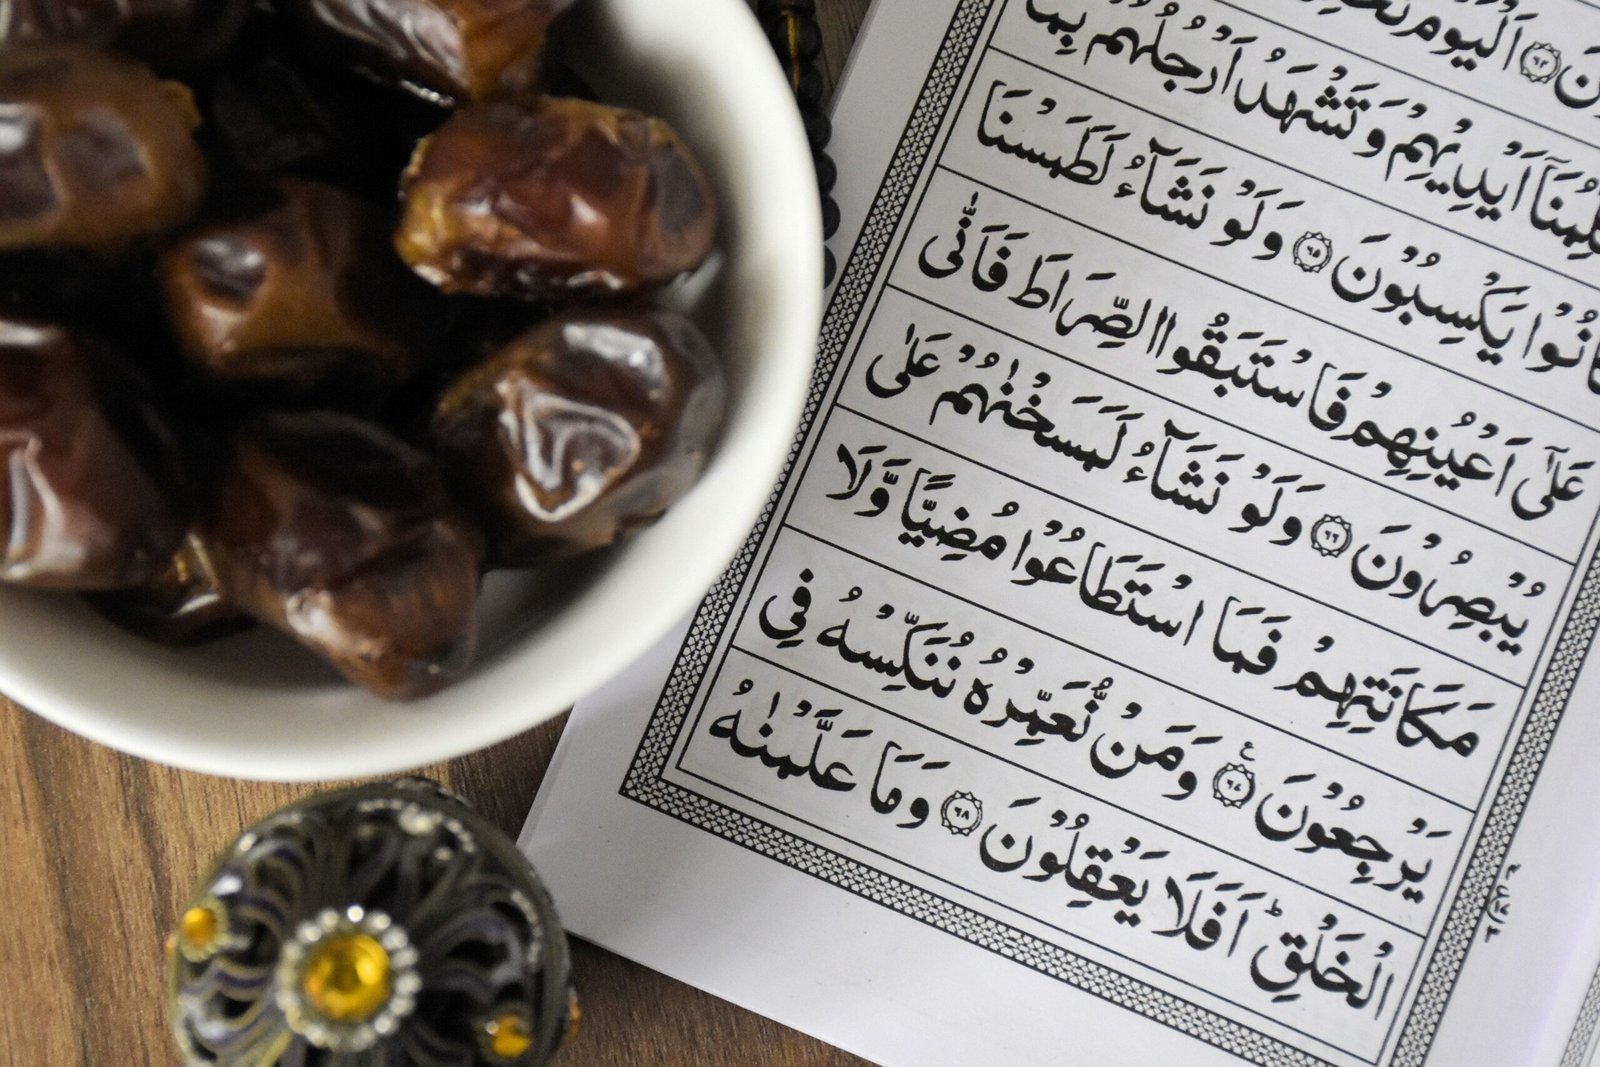 اَلْيَوْمَ
اَيْدِيْهِمْ وَتَشْهَدُ اَرْجُلُهُمْ بِمَا
كَانُوْا يَكْسِبُوْنَ ﴿۶۵﴾ وَلَوْ نَشَآءُ لَطَمَسْنَا
عَلٰٓى اَعْيُنِهِمْ فَاسْتَبَقُوا الصِّرَاطَ فَاَنّٰى
يُبْصِرُوْنَ ﴿۶۶﴾ وَلَوْ نَشَآءُ لَمَسَخْنٰهُمْ عَلٰى
مَكَانَتِهِمْ فَمَا اسْتَطَاعُوْا مُضِيًّا وَّلَا
يَرْجِعُوْنَ ﴿۶۷﴾ؑ وَمَنْ نُّعَمِّرْهُ نُنَكِّسْهُ فِى
الْخَلْقِؕ اَفَلَا يَعْقِلُوْنَ ﴿۶۸﴾ وَمَا عَلَّمْنٰهُ